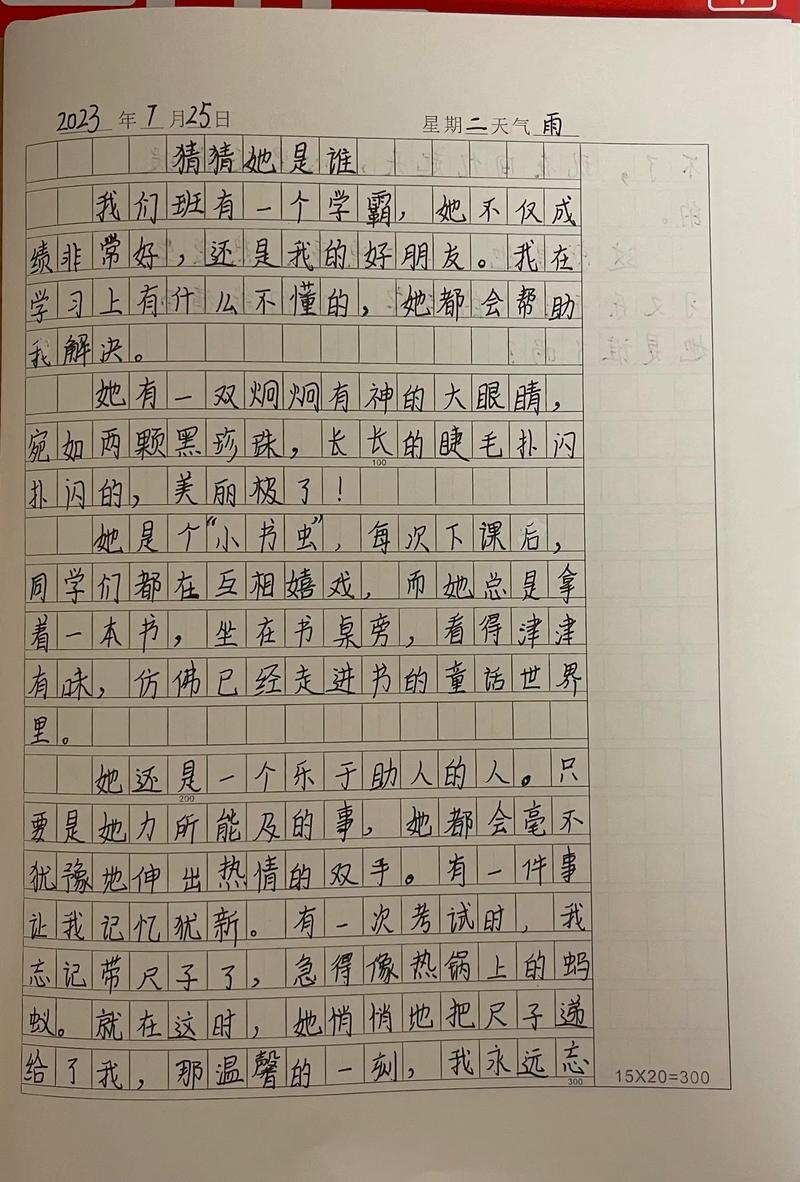 2023年7月25日 星期二天气雨
猜猜她是谁
我们班有一个学霸，她不仅成
绩非常好，还是我的好朋友。我在
学习上有什么不懂的，她都会帮助
我解决。
她有一双炯炯有神的大眼睛，
宛如两颗黑珍珠，长长的睫毛扑闪
100
扑闪的，美丽极了！
她是个“小书虫”，每次下课后，
同学们都在互相嬉戏，而她总是拿
着一本书，坐在书桌旁，看得津津
有味，仿佛已经走进书的童话世界
里。
她还是一个乐于助人的人。只
200
要是她力所能及的事，她都会毫不
犹豫地伸出热情的双手。有一件事
让我记忆犹新。有一次考试时，我
忘记带尺子了，急得像热锅上的蚂
蚁。就在这时，她悄悄地把尺子递
给了我，那温馨的一刻，我永远忘
300
15X20=300